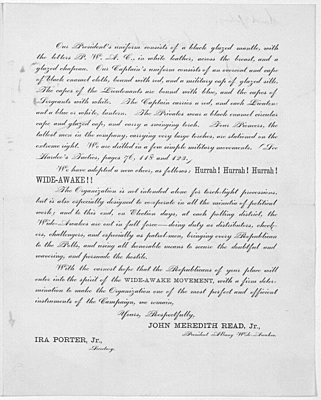 Our President's uniform consists of a black glazed mantle, with
the letters P. W. A. C., in white leather, across the breast, and a
glazed chapeau. Our Captain's uniform consists of an overcoat and cape
of black enamel cloth, bound with red, and a military cap of glazed silk.
The capes of the Lieutenants are bound with blue, and the capes of
Sergeants with white. The Captain carries a red, and each Lieuten-
ant a blue or white, lantern. The Privates wear a black enamel circular
cape and glazed cap, and carry a swinging torch. Four Pioneers, the
tallest men in the company, carrying very large torches, are stationed on the
extreme right. We are drilled in a few simple military movements. (See
Hardee's Tactics, pages 76, 118 and 122.)
We have adopted a new cheer, as follows: Hurrah! Hurrah! Hurrah!
WIDE-AWAKE!!
The Organization is not intended alone for torch-light processions,
but is also especially designed to co-operate in all the minutiæ of political
work; and to this end, on Election days, at each polling district, the
Wide-Awakes are out in full force—doing duty as distributors, check-
ers, challengers, and especially as patrol-men, bringing every Republican
to the Polls, and using all honorable means to secure the doubtful and
wavering, and persuade the hostile.
With the earnest hope that the Republicans of your place will
enter into the spirit of the WIDE-AWAKE MOVEMENT, with a firm deter-
mination to make the Organization one of the most perfect and efficient
instruments of the Campaign, we remain,
Yours, Respectfully,
JOHN MEREDITH READ, Jr.,
President Albany Wide-Awakes.
IRA PORTER, Jr.,
Secretary.